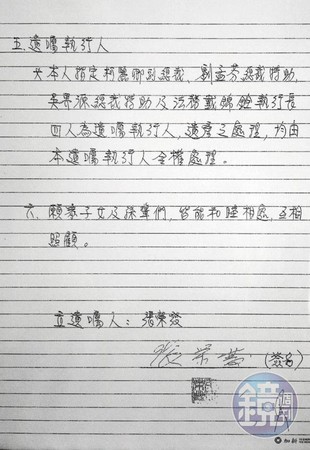 五.遺囑執行人
本人指定柯麗卿副總裁、劉孟芬總裁特助、
吳界源總裁特助及法務戴錦銓執行長
四人為遺囑執行人,遺產之處理,均由
本遺囑執行人全權處理。
六.願妻子女及孫輩們,皆能和睦相處,互相
照顧。
立遺囑人:張榮發
張榮發 (簽名)
鏡週刊
加新